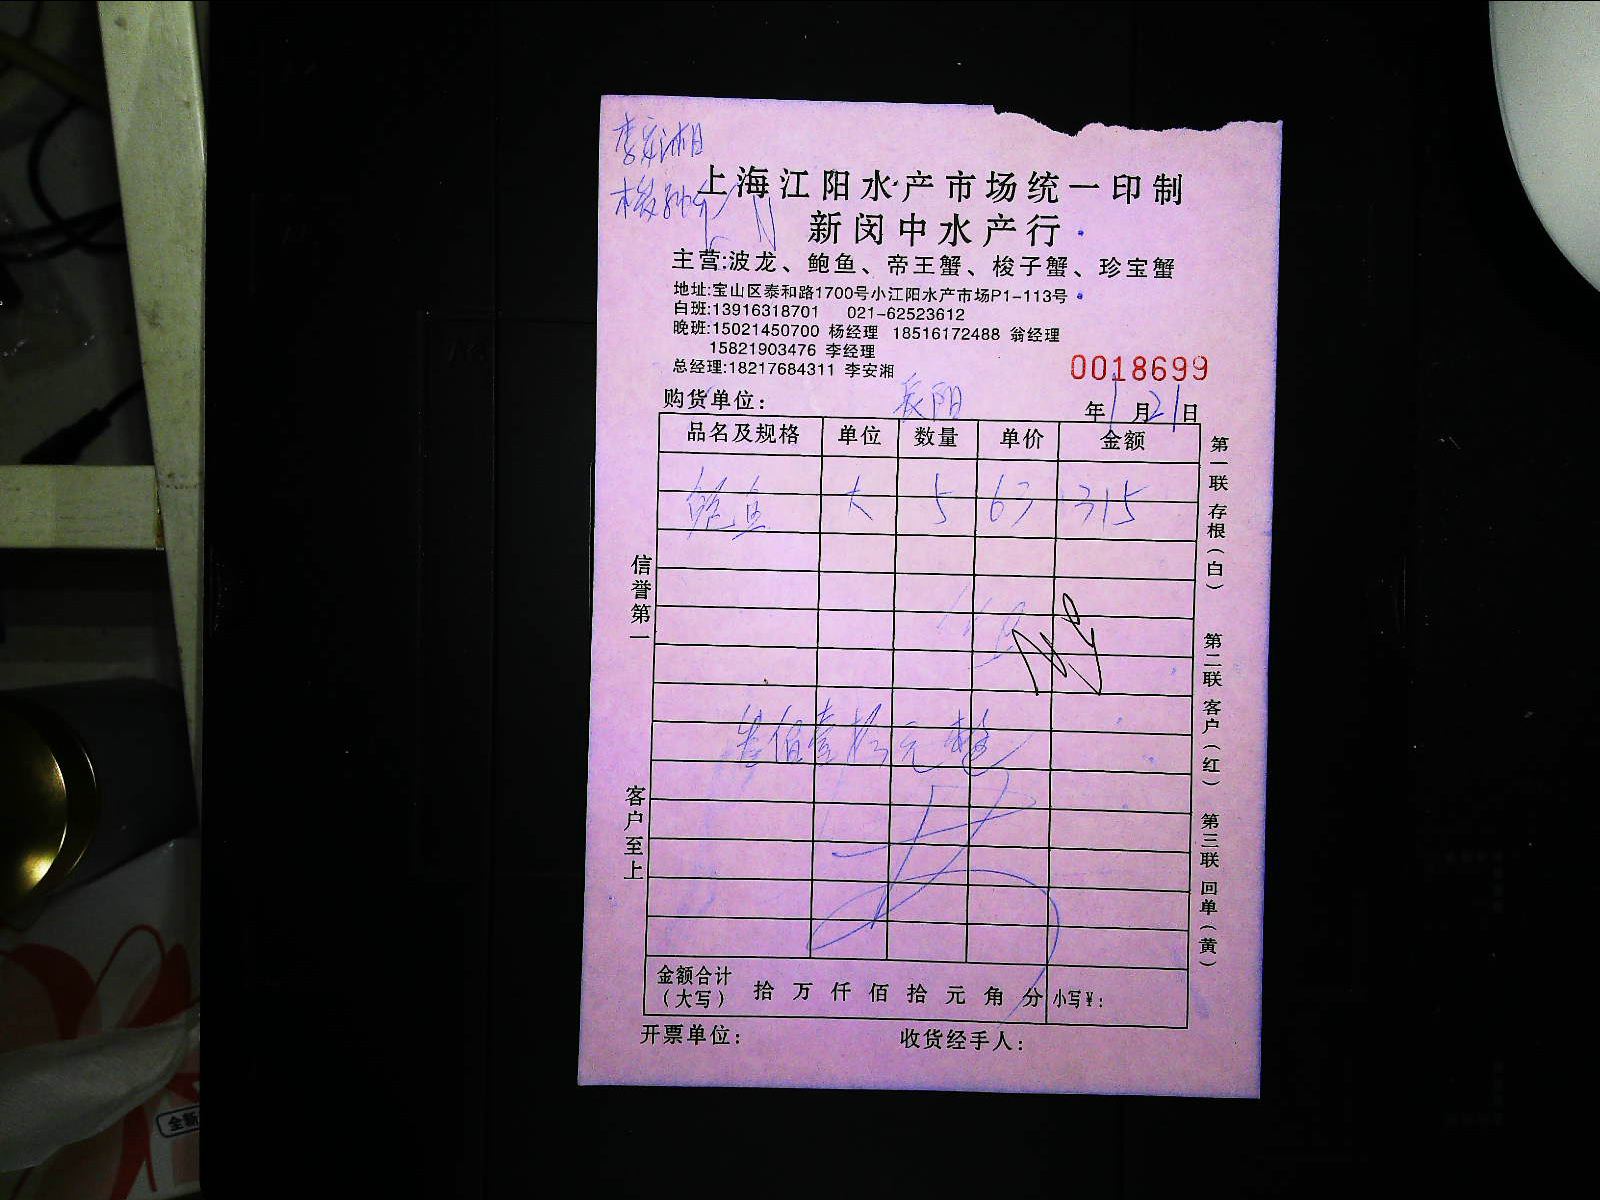 李安湘
上海江阳水产市场统一印制
新闵中水产行
主营:波龙、鲍鱼、帝王蟹、梭子蟹、珍宝蟹
地址:宝山区泰和路1700号小江阳水产市场P1-113号
白班:13916318701 021-62523612
晚班:15021450700 杨经理 18516172488 翁经理
15821903476 李经理
总经理:18217684311 李安湘
0018699
购货单位: 长阳 年1月21日
品名及规格 单位 数量 单价 金额
鲍鱼 大 5 63 315
叁佰壹拾元整
金额合计(大写) 拾 万 仟 佰 拾 元 角 分 小写¥:
开票单位: 收货经手人:
信誉第一
客户至上
第一联 存根(白)
第二联 客户(红)
第三联 回单(黄)
全新